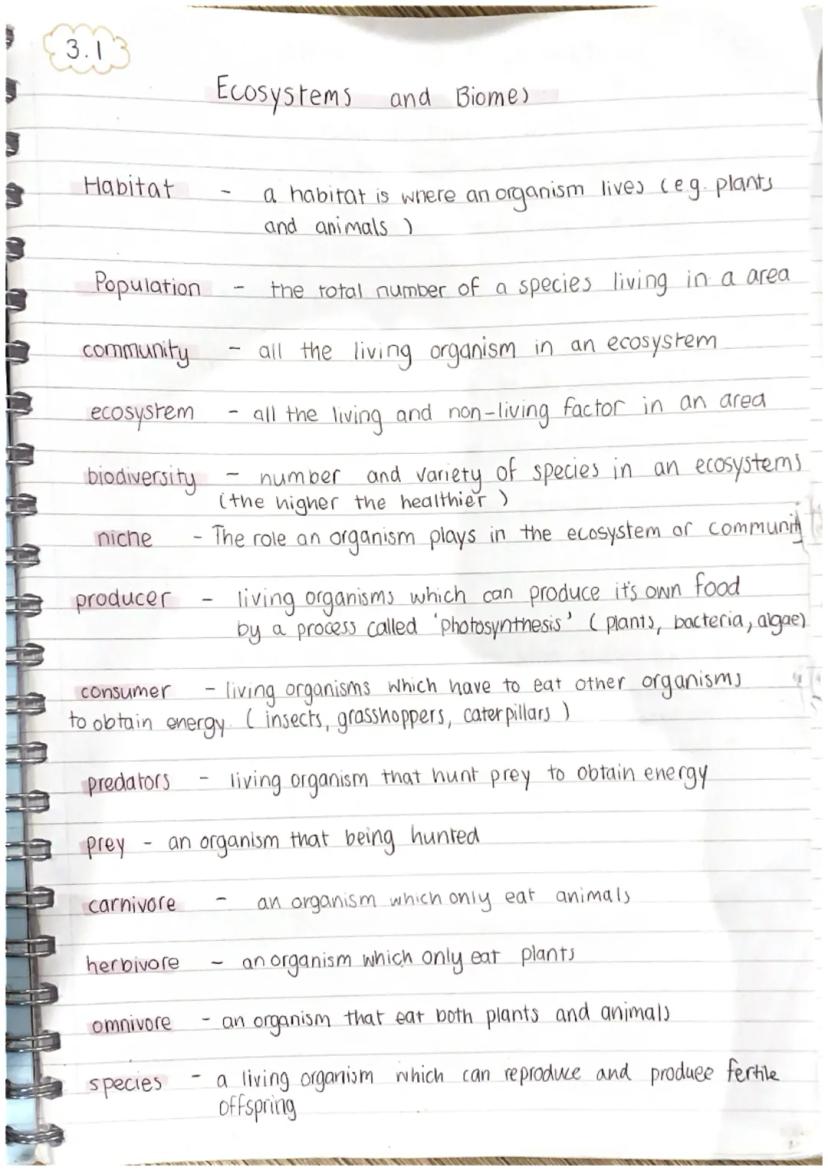 3.1
Ecosystems and Biomes
Habitat - a habitat is where an organism lives (e.g. plants
and animals)
Population - the total number of a species living in a area
community - all the living organism in an ecosystem
ecosystem - all the living and non-living factor in an area
biodiversity - number and variety of species in an ecosystems
(the higher the healthier)
niche - The role an organism plays in the ecosystem or community
producer - living organisms which can produce it's own food
by a process called 'photosynthesis' (plants, bacteria, algae)
consumer - living organisms which have to eat other organisms
to obtain energy (insects, grasshoppers, caterpillars)
predators - living organism that hunt prey to obtain energy
prey - an organism that being hunted
carnivore - an organism which only eat animals
herbivore - an organism which only eat plants
omnivore - an organism that eat both plants and animals
species - a living organism which can reproduce and produce fertile
offspring